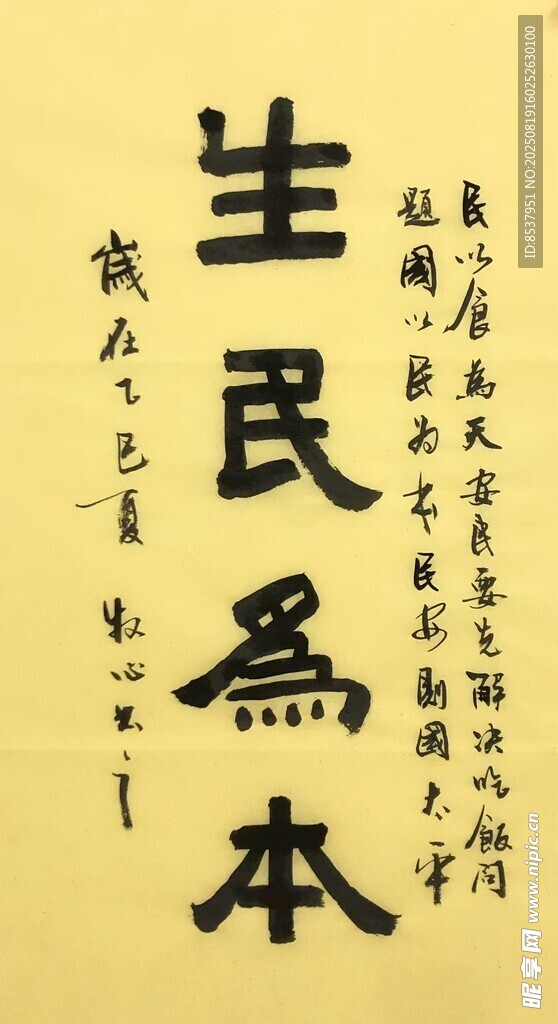 民以食為天安民要先解决吃飯问
題國以民为本民安則國太平
生民為本
歲在乙巳夏 牧心书之
ID:8537951 NO:20250819160252630100
昵享网 www.nipic.cn